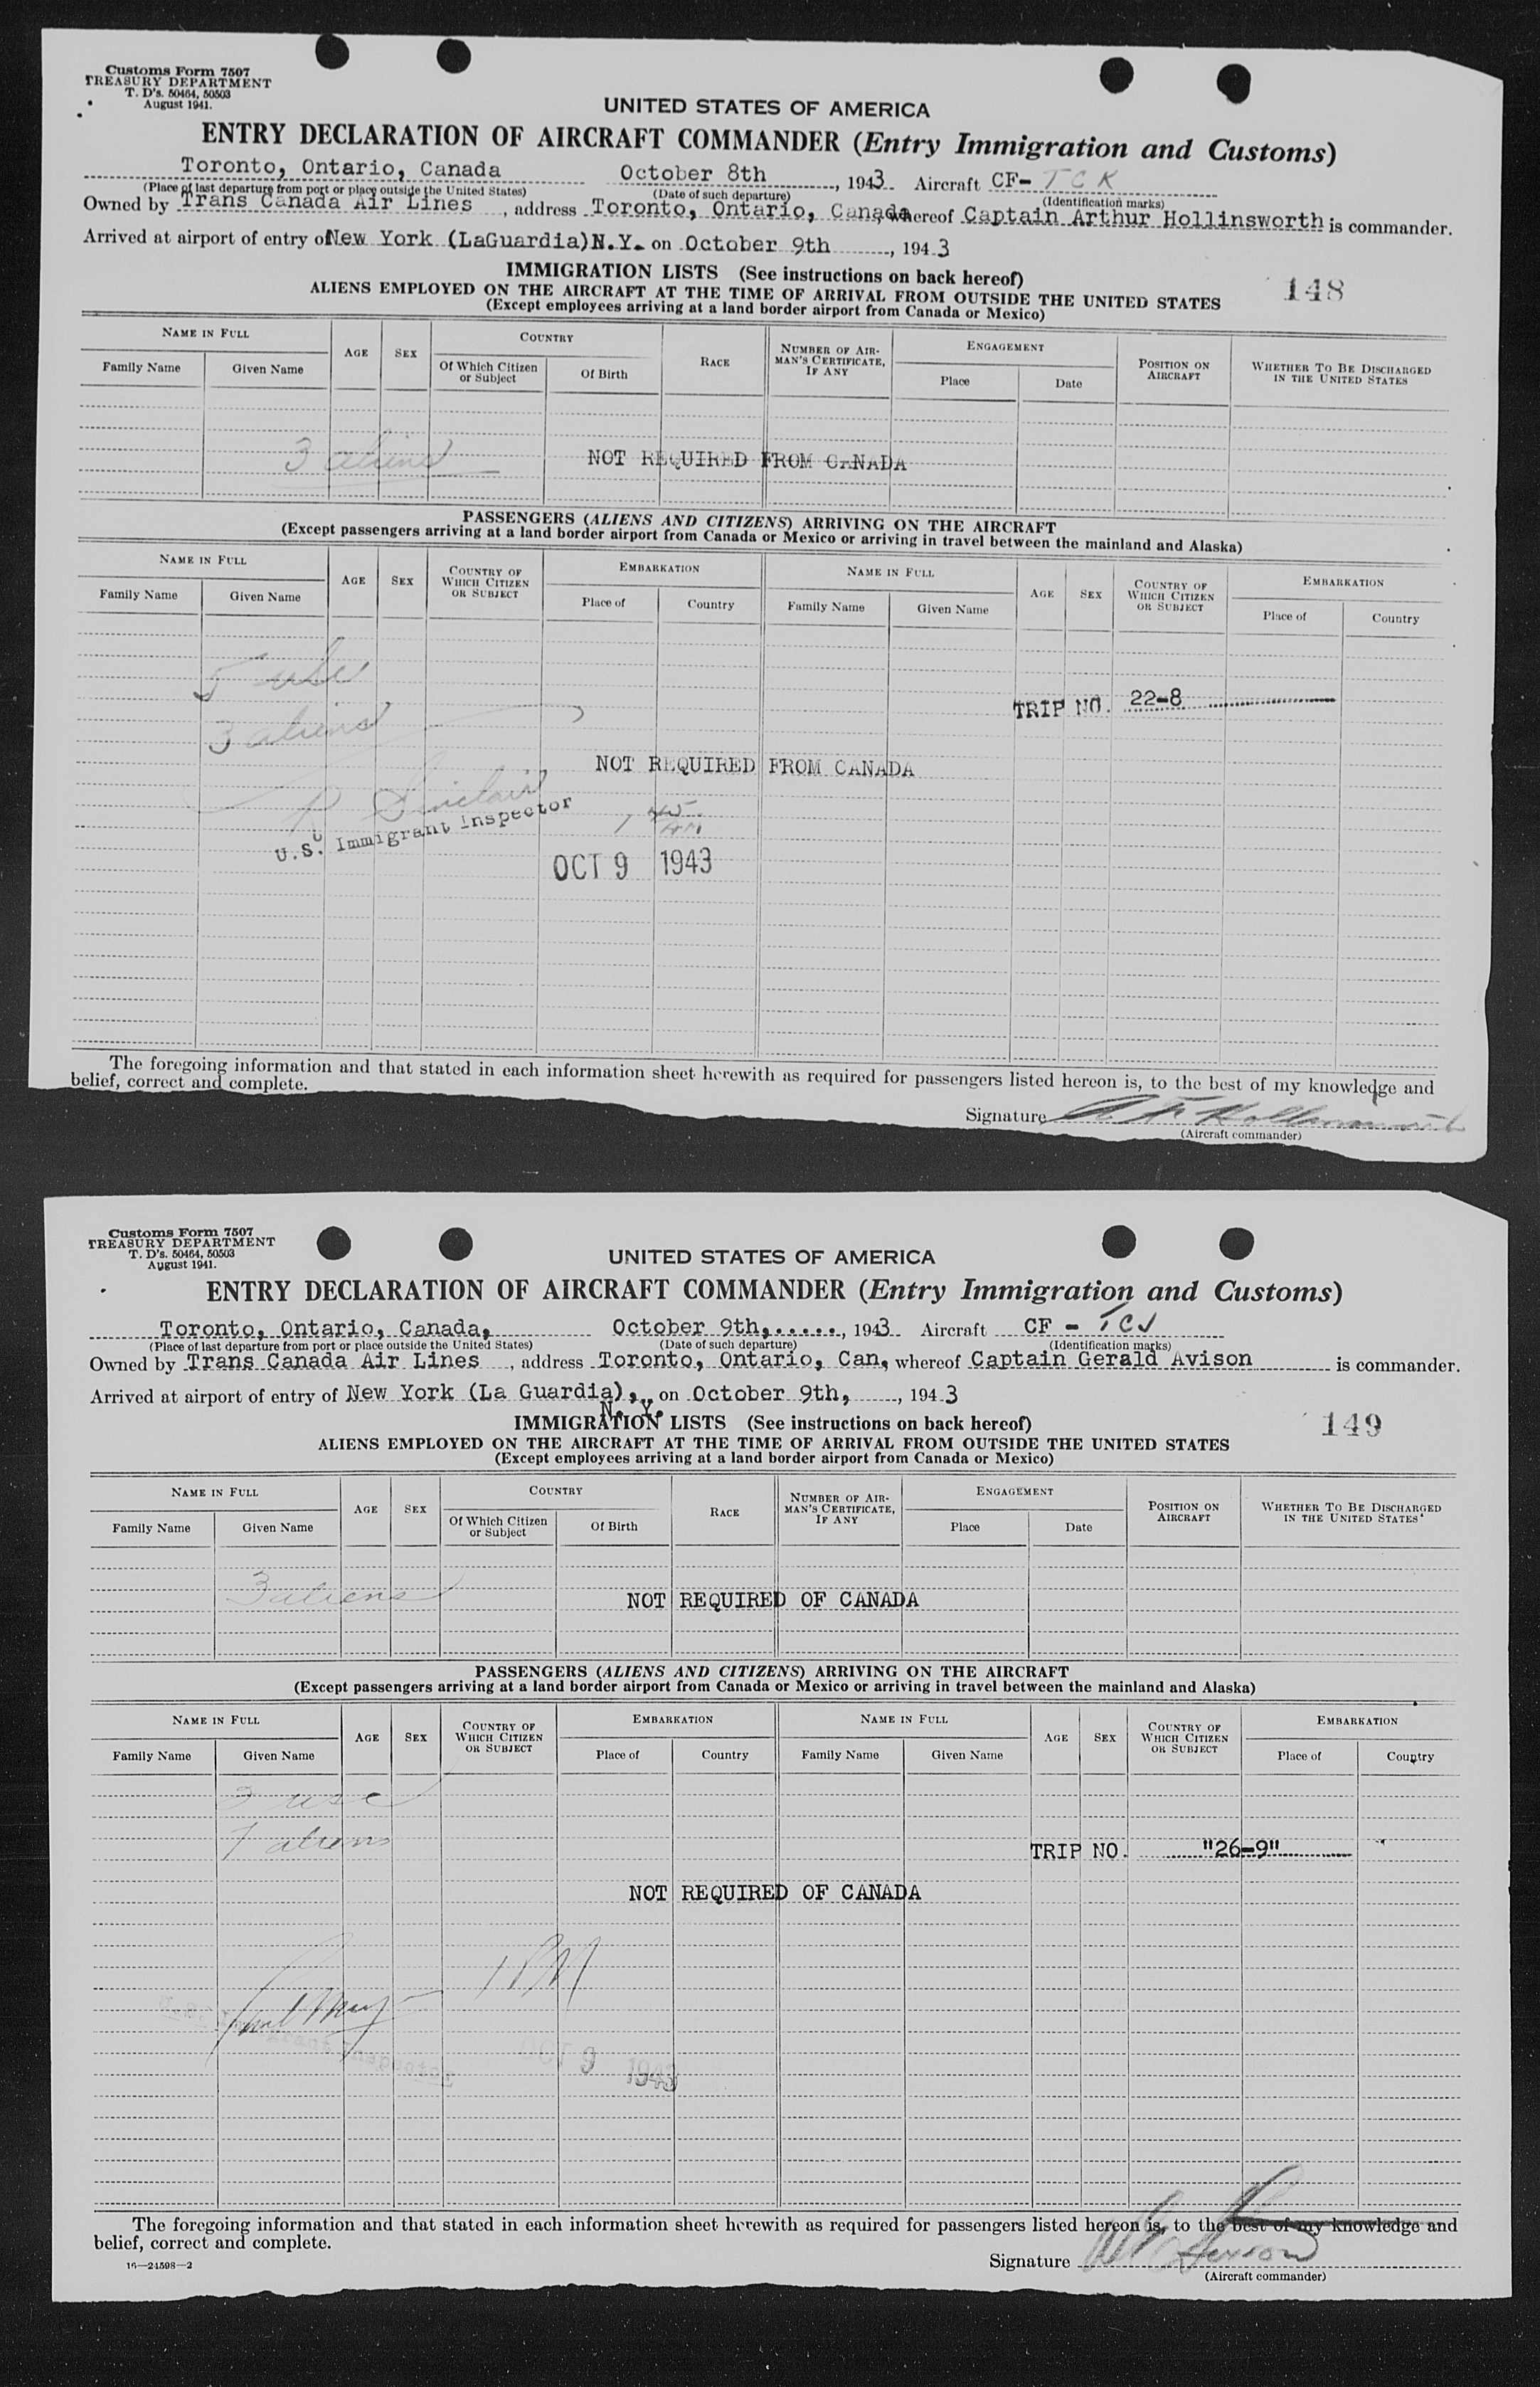 Customs Form 7507
TREASURY DEPARTMENT
T. D's. 50464, 50503
August 1941.
UNITED STATES OF AMERICA
ENTRY DECLARATION OF AIRCRAFT COMMANDER (Entry Immigration and Customs)
Toronto, Ontario, Canada October 8th, 1943. Aircraft CF- TCK
(Place of last departure from port or place outside the United States) (Date of such departure) (Identification marks)
Owned by Trans Canada Air Lines, address Toronto, Ontario, Canada, whereof Captain Arthur Hollinsworth is commander.
Arrived at airport of entry of New York (LaGuardia) N.Y. on October 9th, 1943
IMMIGRATION LISTS (See instructions on back hereof)
148
ALIENS EMPLOYED ON THE AIRCRAFT AT THE TIME OF ARRIVAL FROM OUTSIDE THE UNITED STATES
(Except employees arriving at a land border airport from Canada or Mexico)
NAME IN FULL AGE SEX COUNTRY RACE NUMBER OF AIR-MAN'S CERTIFICATE, IF ANY ENGAGEMENT POSITION ON AIRCRAFT WHETHER TO BE DISCHARGED IN THE UNITED STATES
Family Name Given Name Of Which Citizen or Subject Of Birth Place Date
3 aliens NOT REQUIRED FROM CANADA
PASSENGERS (ALIENS AND CITIZENS) ARRIVING ON THE AIRCRAFT
(Except passengers arriving at a land border airport from Canada or Mexico or arriving in travel between the mainland and Alaska)
NAME IN FULL AGE SEX COUNTRY OF WHICH CITIZEN OR SUBJECT EMBARKATION NAME IN FULL AGE SEX COUNTRY OF WHICH CITIZEN OR SUBJECT EMBARKATION
Family Name Given Name Place of Country Family Name Given Name Place of Country
5 usc
TRIP NO. 22-8
3 aliens
NOT REQUIRED FROM CANADA
R Sinclair
U.S. Immigrant Inspector
1 45 AM
OCT 9 1943
The foregoing information and that stated in each information sheet herewith as required for passengers listed hereon is, to the best of my knowledge and
belief, correct and complete.
Signature
(Aircraft commander)
Customs Form 7507
TREASURY DEPARTMENT
T. D's. 50464, 50503
August 1941.
UNITED STATES OF AMERICA
ENTRY DECLARATION OF AIRCRAFT COMMANDER (Entry Immigration and Customs)
Toronto, Ontario, Canada, October 9th,....., 1943. Aircraft CF - TCJ
(Place of last departure from port or place outside the United States) (Date of such departure) (Identification marks)
Owned by Trans Canada Air Lines, address Toronto, Ontario, Can, whereof Captain Gerald Avison is commander.
Arrived at airport of entry of New York (La Guardia), on October 9th, 1943
N. Y.
IMMIGRATION LISTS (See instructions on back hereof)
149
ALIENS EMPLOYED ON THE AIRCRAFT AT THE TIME OF ARRIVAL FROM OUTSIDE THE UNITED STATES
(Except employees arriving at a land border airport from Canada or Mexico)
NAME IN FULL AGE SEX COUNTRY RACE NUMBER OF AIR-MAN'S CERTIFICATE, IF ANY ENGAGEMENT POSITION ON AIRCRAFT WHETHER TO BE DISCHARGED IN THE UNITED STATES
Family Name Given Name Of Which Citizen or Subject Of Birth Place Date
3 aliens NOT REQUIRED OF CANADA
PASSENGERS (ALIENS AND CITIZENS) ARRIVING ON THE AIRCRAFT
(Except passengers arriving at a land border airport from Canada or Mexico or arriving in travel between the mainland and Alaska)
NAME IN FULL AGE SEX COUNTRY OF WHICH CITIZEN OR SUBJECT EMBARKATION NAME IN FULL AGE SEX COUNTRY OF WHICH CITIZEN OR SUBJECT EMBARKATION
Family Name Given Name Place of Country Family Name Given Name Place of Country
3 usc
7 aliens
TRIP NO. "26-9"
NOT REQUIRED OF CANADA
1 PM
OCT 9 1943
The foregoing information and that stated in each information sheet herewith as required for passengers listed hereon is, to the best of my knowledge and
belief, correct and complete.
16—24598—2
Signature
(Aircraft commander)